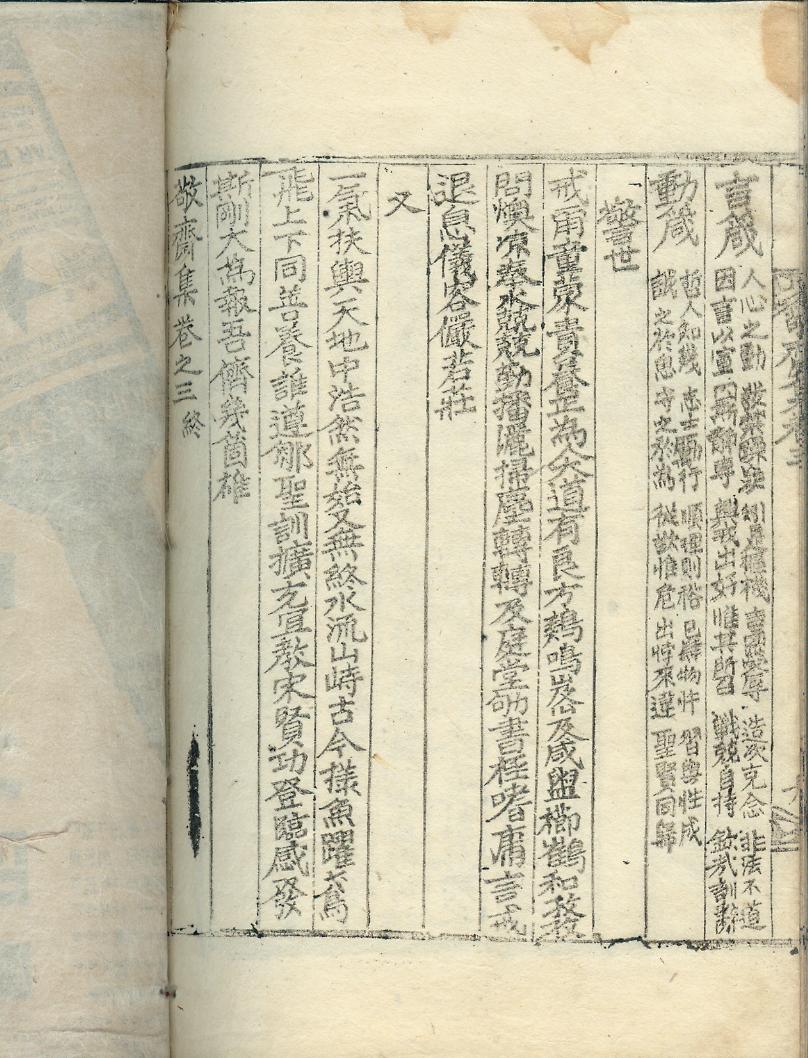 言箴 人心之動 發禁躁妄 矧是樞機 吉凶榮辱 造次克念 非法不道
因言以宣 興戎出好 惟其所召 戰兢自持 欽哉訓辭
動箴 哲人知幾 志士勵行 順理則裕 己肆物忤 習與性成
誠之於思 守之於爲 從欲惟危 出悖來違 聖賢同歸
警世
戒甭童蒙貴養正為人大道有良方鷄鳴岌及咸盥櫛鶴和
問燠凉恭水兢兢勤播灑掃塵轉轉及庭堂劬書在嗜庸言戒
退息儀容儼若莊
又
一氣扶輿天地中浩然無始又無終水流山峙古今樣魚躍鳶
飛上下同善養誰遵鄒聖訓擴充宜教宋賢功登臨感發
斯剛大為報吾儕幾箇雄
敬齋集卷之三 終